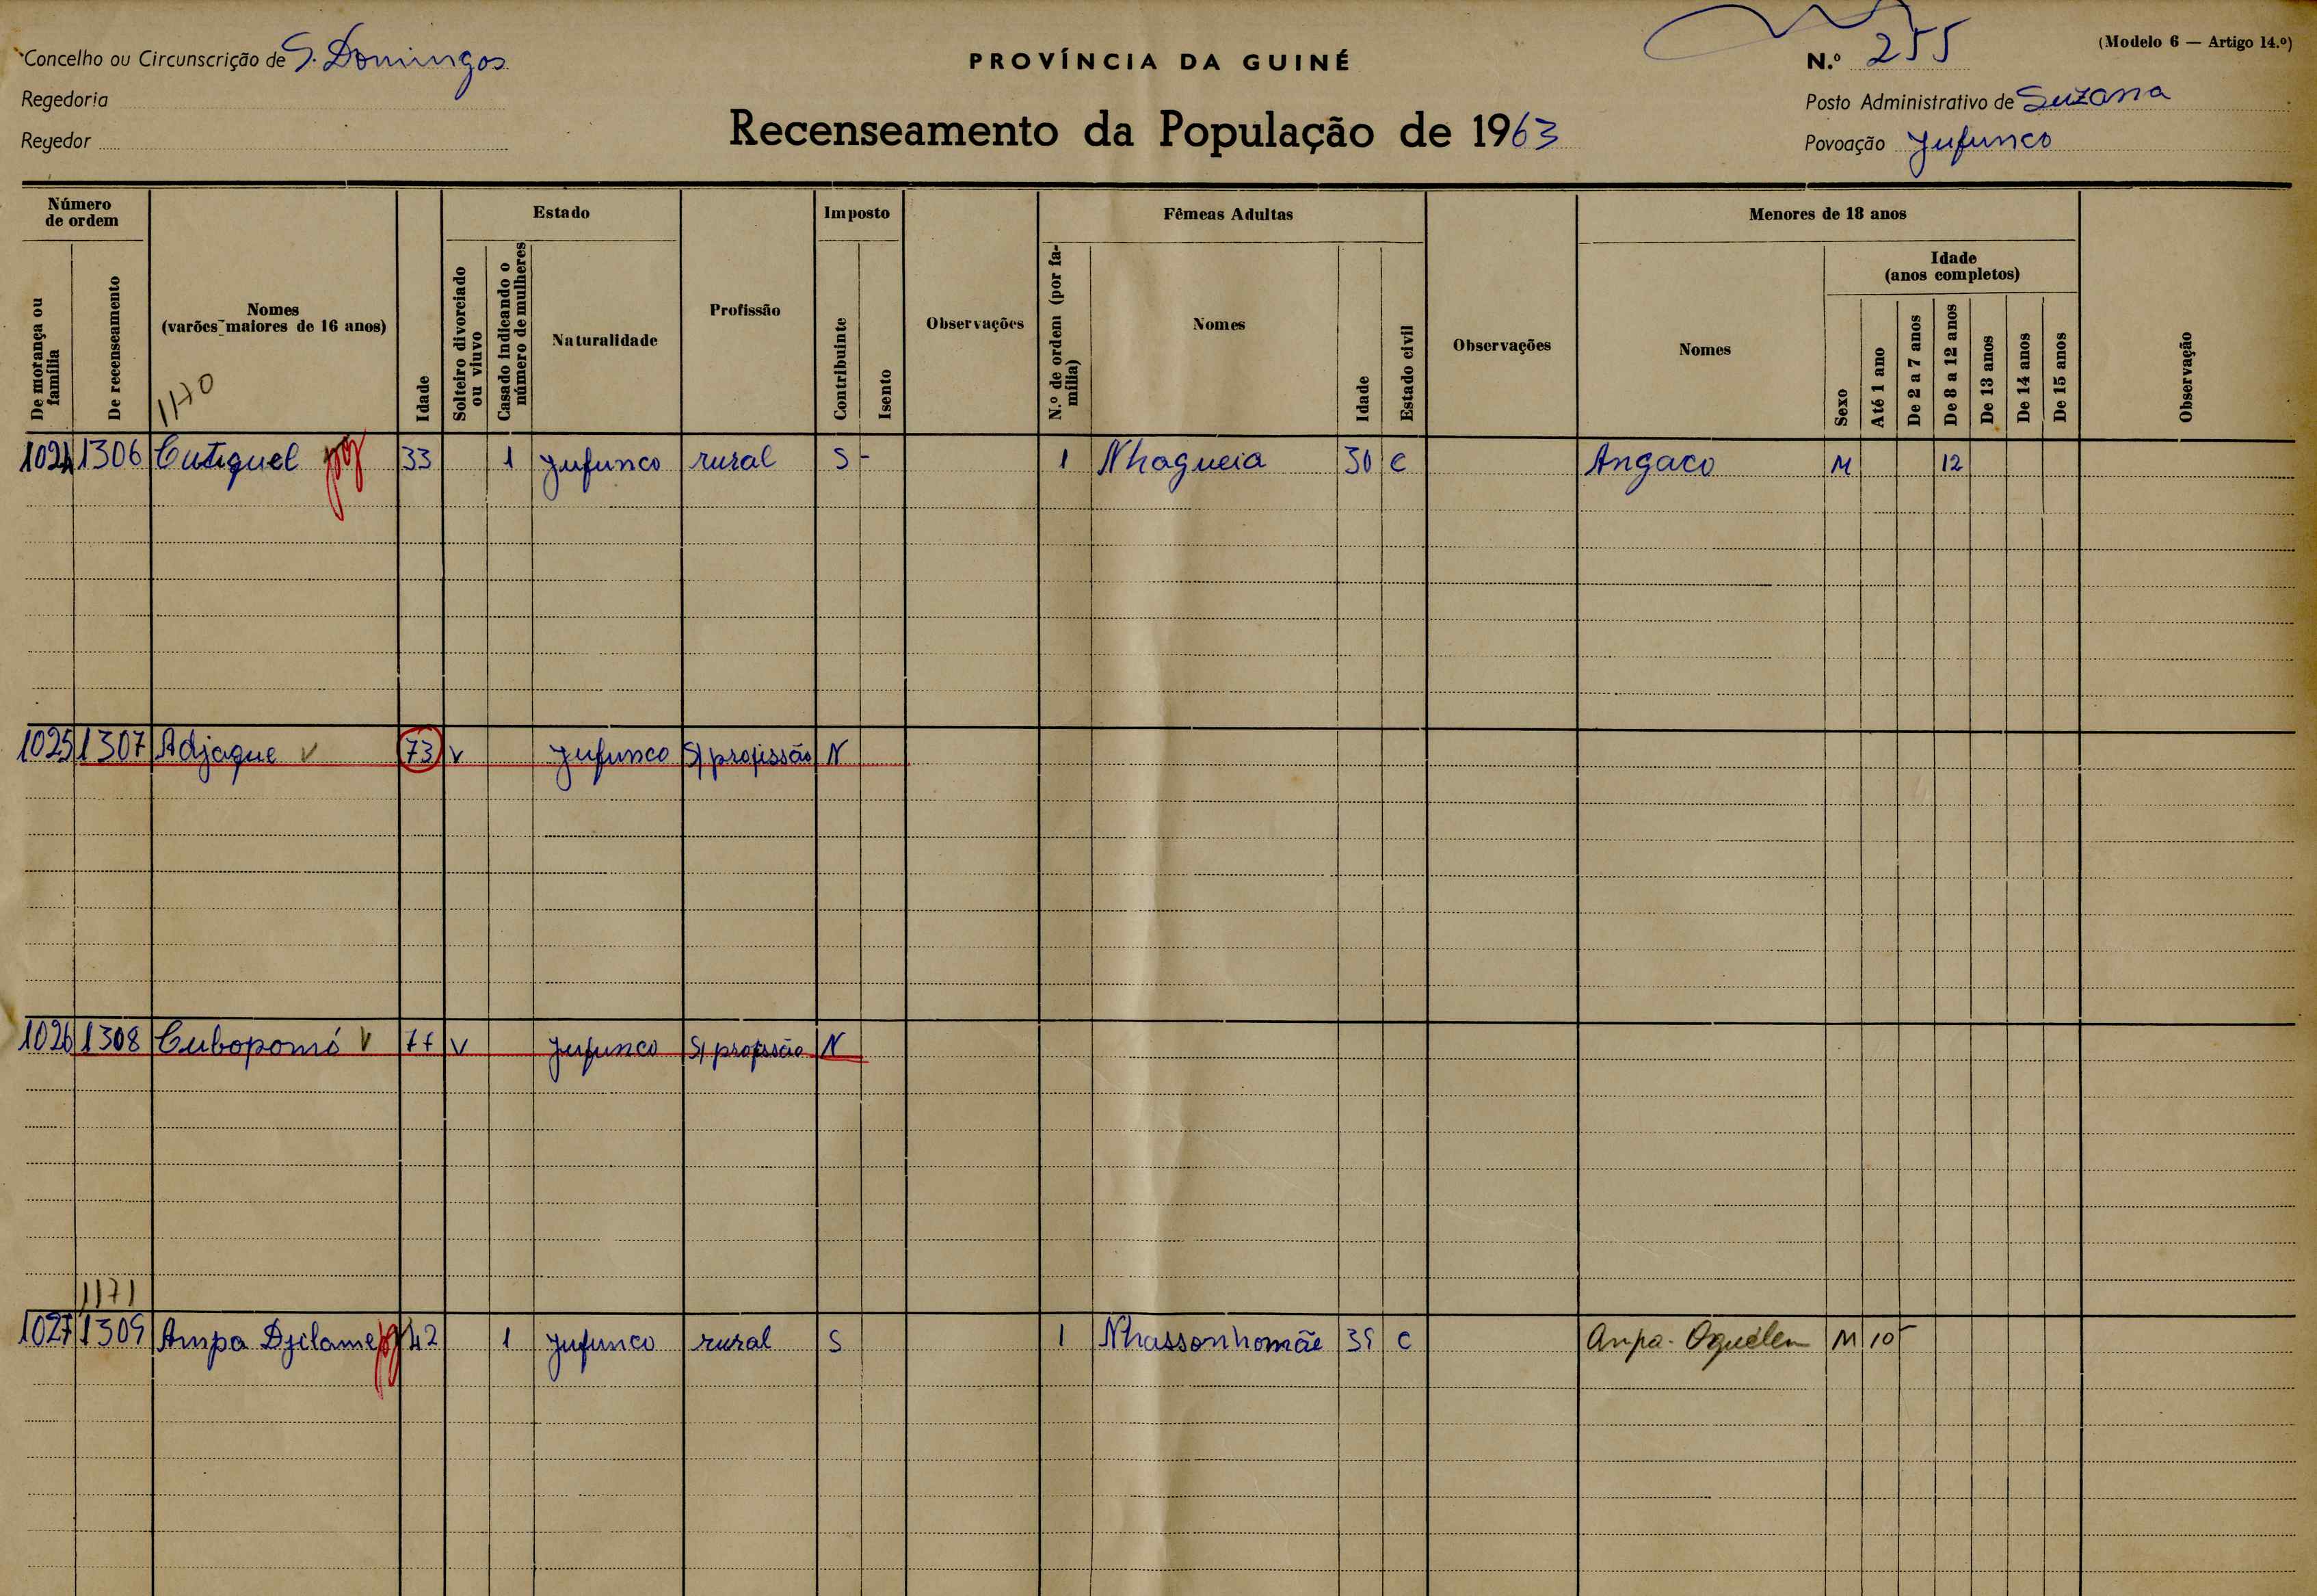 Concelho ou Circunscrição de S. Domingos
Regedoria
Regedor
PROVÍNCIA DA GUINÉ
Recenseamento da População de 1963
(Modelo 6 — Artigo 14.º)
N.º 255
Posto Administrativo de Suzana
Povoação Jufunco
Número de ordem
De morança ou família
De recenseamento
Nomes
(varões maiores de 16 anos)
1170
Idade
Estado
Solteiro divorciado ou viuvo
Casado indicando o número de mulheres
Naturalidade
Profissão
Imposto
Contribuinte
Isento
Observações
Fêmeas Adultas
N.º de ordem (por família)
Nomes
Idade
Estado civil
Observações
Menores de 18 anos
Nomes
Sexo
Idade
(anos completos)
Até 1 ano
De 2 a 7 anos
De 8 a 12 anos
De 13 anos
De 14 anos
De 15 anos
Observação
1024 1306 Cutiquel 33 1 Jufunco rural S - 1 Nhagueia 30 C Angaco M 12
1025 1307 Adjaque V 73 V Jufunco S/ profissão N
1026 1308 Cubopomó V 77 V Jufunco S/ profissão N
1171
1027 1309 Ampa Djilame 42 1 Jufunco rural S 1 Nhassonhomãe 35 C Anpa-Oquélen M 10